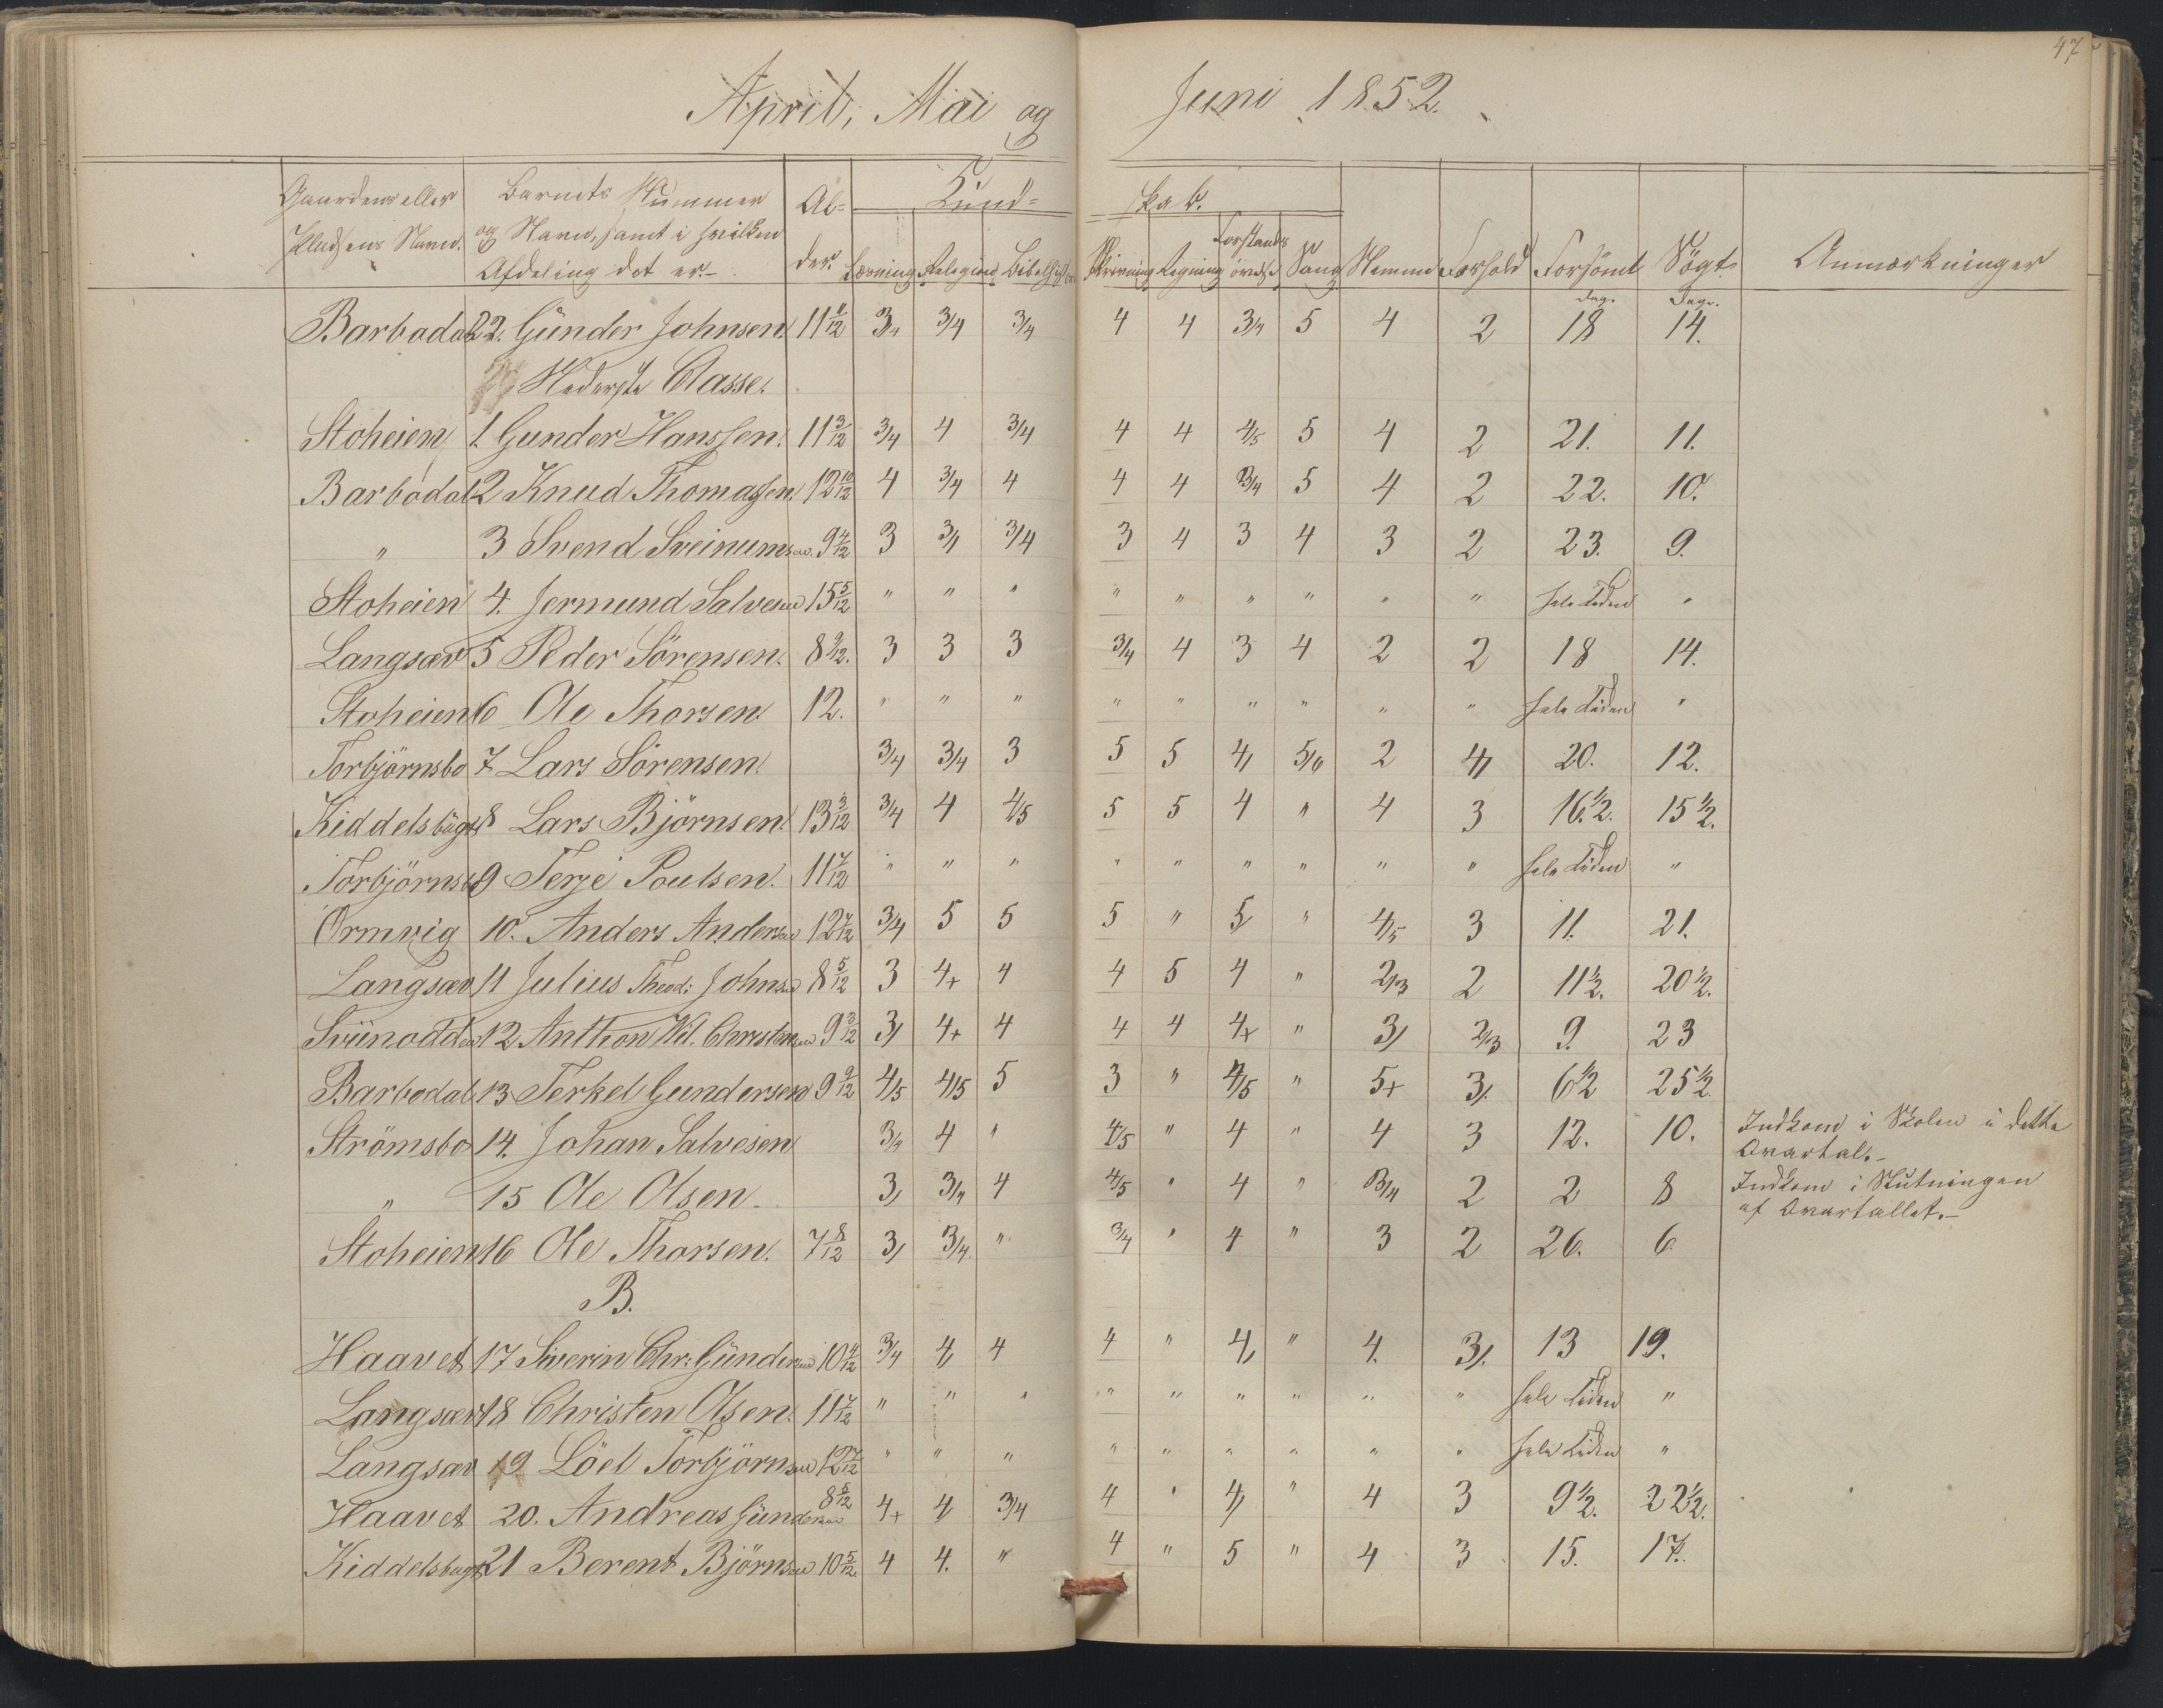 47
April, Mai og Juni 1852.
Gaardens eller Pladsens Navn. | Barnets Nummer og Navn, samt i hvilken Afdeling det er.- | Alder. | Kundskab. | Læsning | Religion | Bibelhist | Skrivning | Regning | Forstands øvelse | Sang | Nemme | Forhold | Forsömt | Sögt | Anmærkninger
Dage. Dage.
Barbodal 22. Günder Johnsen. 11 11/12 3/4 3/4 3/4 4 4 3/4 5 4 2 18 14.
Nederste Classe.
Stoheien 1. Gunder Hanssen. 11 3/12 3/4 4 3/4 4 4 4/5 5 4 2 21. 11.
Barbodal 2 Knud Thomassen. 12 10/12 4 3/4 4 4 4 3/4 5 4 2 22. 10.
" 3 Svend Sveinumsen. 9 4/12 3 3/ 3/4 3 4 3 4 3 2 23. 9.
Stoheien 4. Jermund Salvesen 15 5/12 " " " " " " " " " hele Tiden "
Langsæv 5 Peder Sörensen. 8 9/12. 3 3 3 3/4 4 3 4 2 2 18 14.
Stoheien 6 Ole Thorsen. 12. " " " " " " " " " hele Tiden "
Torbjörnsbo 7 Lars Sörensen. 3/4 3/4 3 5 5 4/ 5/6 2 4/ 20. 12.
Kiddelsbugt 8 Lars Björnsen. 13 3/12 3/4 4 4/5 5 5 4 " 4 3 16 1/2. 15 1/2.
Torbjörnsb 9 Terje Poulsen. 11 7/12 " " " " " " " " " hele Tiden "
Ormvig 10. Anders Andersen 12 7/12 3/4 5 5 5 " 5/ " 4/5 3 11. 21.
Langsæv 11 Julius Theod: Johnsen 8 5/12 3 4+ 4 4 5 4 " 2/3 2 11 1/2. 20 1/2.
Sviinodden 12 Anthon Wil. Christensen 9 3/12 3/ 4+ 4 4 4 4+ " 3/ 2/3 9. 23
Barbodal 13 Terkel Gundersen 9 9/12 4/5 4/5 5 3 " 4/5 " 5+ 3/. 6 1/2 25 1/2
Strömsbo 14. Johan Salvesen 3/4 4 " 4/5 " 4 " 4 3 12. 10. Indkom i Skolen i dette
Qvartal.-
" 15 Ole Olsen. 3/ 3/4 4 4/5 " 4 " 3/4 2 2 8 Indkom i Slutningen
af Qvartallet.-
Stoheien 16 Ole Thorsen. 7 8/12 3/ 3/4 " 3/4 " 4 " 3 2 26. 6.
B.
Haavet 17 Siverin Chr: Gündersen 10 4/12 3/4 4/ 4 4 " 4/ " 4. 3/. 13 19.
Langsæv 18 Christen Olsen. 11 7/12 " " " " " " " " " hele Tiden "
Langsæv 19 Löel Torbjörnsen 12 7/12 " " " " " " " " " hele Tiden "
Haavet 20. Andreas Gündersen 8 5/12 4+ 4/ 3/4 4 " 4/ " 4 3 9 1/2. 22 1/2.
Kiddelsbugt 21 Berent Björnsen 10 5/12. 4 4. " 4 " 5 " 4 3 15. 17.